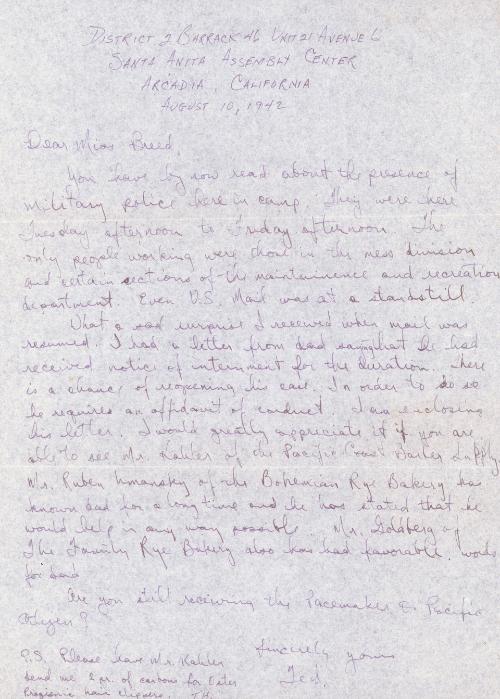 DISTRICT 2 BARRACK 46 UNIT 21 AVENUE 6
SANTA ANITA ASSEMBLY CENTER
ARCADIA, CALIFORNIA
AUGUST 10, 1942
Dear Miss Breed,
You have by now read about the presence of
military police here in camp. They were here
Tuesday afternoon to Friday afternoon. The
only people working were those in the mess division
and certain sections of the maintainence and recreation
department. Even U.S. Mail was at a standstill.
What a sad surprise I received when mail was
resumed. I had a letter from dad saying that he had
received notice of internment for the duration. There
is a chance of reopening his case. In order to do so
he requires an affidavit of conduct. I am enclosing
his letter. I would greatly appreciate it if you are
able to see Mr. Kahler of the Pacific Coast Barber Supply.
Mr. Ruben of the Bohemian Rye Bakery has
known dad for a long time and he has stated that he
would help in any way possible. Mr. Goldberg of
The Family Rye Bakery also has had favorable words
for dad.
Are you still receiving the Pacemaker & Pacific
Citizen?
Sincerely yours
Ted.
P.S. Please have Mr. Kahler
send me 2 pr. of
hair clippers. T.H.